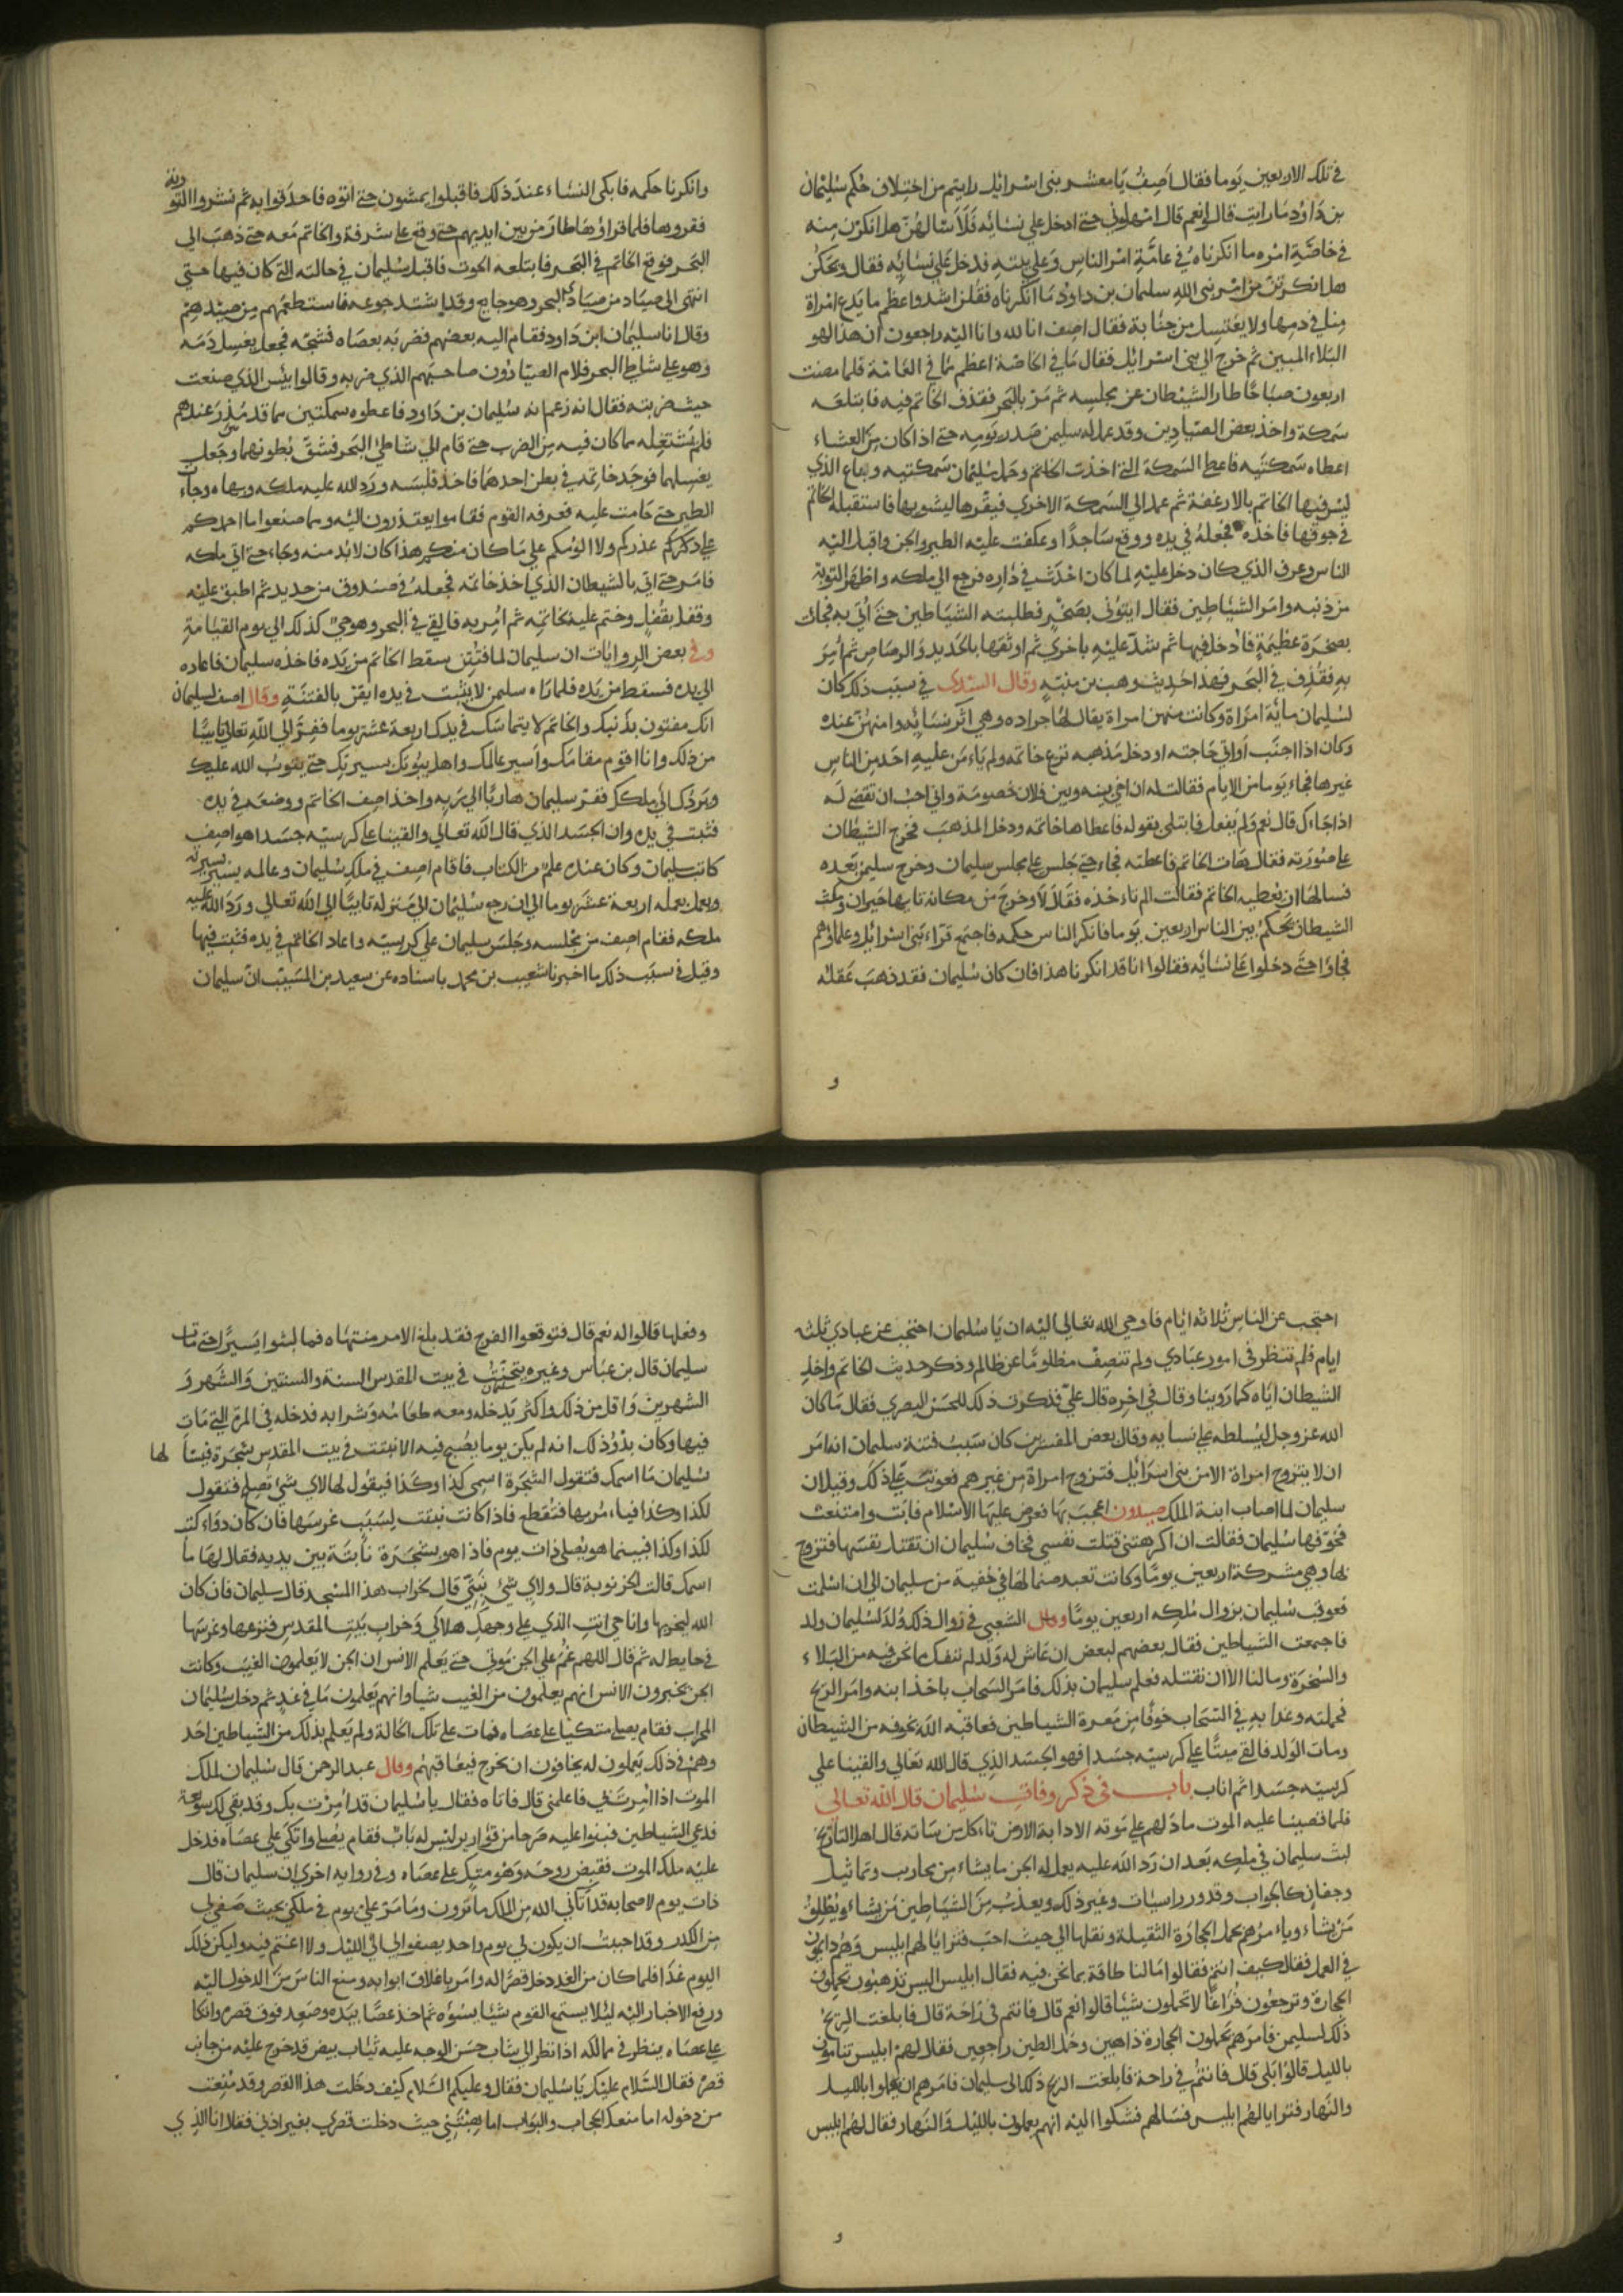 في تلك الاربعين يوما فقال اصف يا معشر بني اسرائيل رايتم من اختلاف حكم سليمان
بن داود ما رايت قالوا نعم قال امهلوني حتى ادخل على نسائه فلاسالهن هل انكرن منه
في خاصة امره ما انكرناه في عامة امر الناس وعلي بيته فدخل على نسائه فقال ويحكن
هل انكرتن من امر نبي الله سليمان بن داود ما انكرناه فقلن اشد واعظم ما يدع امراة
منا في دمها ولا يغتسل من جنابة فقال اصف انا لله وانا اليه راجعون ان هذا لهو
البلاء المبين ثم خرج الي بني اسرائيل فقال ما في الخاصة اعظم مما في العامة فلما مضت
اربعون صباحا طار الشيطان عن مجلسه ثم مر بالبحر فقذف الخاتم فيه فابتلعه
سمكة واخذ بعض الصيادين وقد عمل له سليمن صدر يومه حتى اذا كان من العشاء
اعطاه سمكتيه فاعطى السمكة التي اخذت الخاتم وحمل سليمان سمكتيه وباع الذي
ليس فيها الخاتم بالارغفة ثم عمد الي السمكة الاخري فبقرها ليشويها فاستقبله الخاتم
في جوفها فاخذه فجعله في يده ووقع ساجدا وعكفت عليه الطير والجن واقبل اليه
الناس وعرف الذي كان دخل عليه لما كان احدث في داره فرجع الي ملكه واظهر التوبة
من ذنبه وامر الشياطين فقال ايتوني بصخر فطلبته الشياطين حتى أتي به فجاب
بصخرة عظيمة فادخل فيها ثم شد عليه باخرى ثم اوثقها بالحديد والرصاص ثم أمر
به فقذف في البحر فهذا حديث وهب بن منبه وقال السدي في سبب ذلك كان
لسليمان مائة امراة وكانت منهن امراة يقال لها جراده وهي اثر نسائه وامنهن عنده
وكان اذا اجنب او اتي حاجته او دخل مذهبه نزع خاتمه ولم ياءمن عليه احد من الناس
غيرها فجاء يوما من الايام فقالت له ان اخي بينه وبين فلان خصومة واني احب ان تقضي له
اذا جاءك قال نعم ولم يفعل فابتلي بقوله فاعطاها خاتمه ودخل المذهب فخرج الشيطان
على صورته فقال هات الخاتم فاعطته فجاء حتى جلس على مجلس سليمان وخرج سليمن بعده
فسالها ان يعطيه الخاتم فقالت الم تاءخذه فقال لا وخرج من مكانه تايها حيران ومكث
الشيطان يحكم بين الناس اربعين يوما فانكر الناس حكمه فاجتمع قراء بني اسرائيل وعلماوهم
فجاوا حتى دخلوا على نسائه فقالوا انا قد انكرنا هذا فان كان سليمان فقد ذهب عقله
و
وانكرنا حكمه فابكي النساء عند ذلك فاقبلوا يمشون حتى اتوه فاحدقوا به ثم نشروا التو
رية
فقروها فلما قراؤها طار من بين ايديهم حتى وقع على شرفة والخاتم معه حتى ذهب الي
البحر فوقع الخاتم في البحر فابتلعه الحوت فاقبل سليمان في حالته التي كان فيها حتى
انتهى الى صياد من صيادي البحر وهو جايع وقد اشتد جوعه فاستطعمهم من صيدهم
وقال انا سليمان ابن داود فقام اليه بعضهم فضربه بعصاه فشجه فجعل يغسل دمه
وهو على شاطي البحر فلام الصيادون صاحبهم الذي ضربه وقالوا بئس الذي صنعت
حيث ضربته فقال انه زعم انه سليمان بن داود فاعطوه سمكتين مما قد مذر عندهم
فلم يشتغله ما كان فيه من الضرب حتى قام الي شاطئ البحر فشق بطونهما وجعل
يغسلهما فوجد خاتمه في بطن احدهما فاخذ فلبسه ورد الله عليه ملكه وبهاه وجاءت
الطير حتى حامت عليه فعرفه القوم فقاموا يعتذرون اليه ومما صنعوا ما احمدكم
على ذكركم عذركم ولا الومكم علي ما كان منكم هذا كان لا بد منه وجاء حتى اتي ملكه
فامر حتى اتي بالشيطان الذي اخذ خاتمه فجعله في صندوق من حديد ثم اطبق عليه
وقفل بقفل وختم عليه بخاتمه ثم أمر به فالقي في البحر وهو حي كذلك الي يوم القيامة
وفي بعض الروايات ان سليمان لما فتن سقط الخاتم من يده فاخذه سليمان فاعاده
الي يده فسقط من يده فلما راه سليمن لا يثبت في يده ايقن بالفتنة وقال اصف لسليمان
انك مفتون بذنبك والخاتم لا يتماسك في يدك اربعة عشر يوما ففر الي الله تعالي تايبا
من ذلك وانا اقوم مقامك واسير عالمك واهل بيوتك بسيرتك حتى يتوب الله عليك
ويردك الي ملكك ففر سليمان هاربا الي ربه واخذ اصف الخاتم ووضعه في يده
فثبت في يده وان الجسد الذي قال الله تعالي والقينا على كرسيه جسدا هو اصف
كاتب سليمان وكان عنده علم من الكتاب فاقام اصف في ملك سليمان وعالمه يسير بسيرته
ويعمل بعمله اربعة عشر يوما الي ان رجع سليمان الي منزله تايبا الي الله تعالي ورد الله عليه
ملكه فقام اصف من مجلسه وجلس سليمان على كرسيه واعاد الخاتم في يده فثبت فيها
وقيل في سبب ذلك ما اخبرنا شعيب بن محمد باسناده عن سعيد بن المسيب ان سليمان
احتجب عن الناس ثلاثة ايام فاوحي الله تعالي اليه ان يا سليمان احتجبت عن عبادي ثلثه
ايام فلم تنتظر في امور عبادي ولم تنصف مظلوما عن ظالم وذكر حديث الخاتم واخذ
الشيطان اياه كما روينا وقال في اخره قال علي فذكرت ذلك للحسن البصري فقال ما كان
الله عز وجل ليسلطه على نسايه وقال بعض المفسرين كان سبب فتنة سليمان انه امر
ان لا يتزوج امراة الا من بني اسرائيل فتزوج امراة من غيرهم فعوتب على ذلك وقيل ان
سليمان لما اصاب ابنة الملك صيدون اعجب بها فعرض عليها الاسلام فابت وامتنعت
فخوفها سليمان فقالت ان اكرهتني قتلت نفسي فخاف سليمان ان تقتل نفسها فتزوج
بها وهي مشركة اربعين يوما وكانت تعبد صنما لها في خفية من سليمان الي ان اسلمت
فعوقب سليمان بزوال ملكه اربعين يوما وقال الشعبي في زوال ذلك ولد لسليمان ولد
فاجمعت الشياطين فقال بعضهم لبعض ان عاش له ولد لم ننفك مما نحن فيه من البلاء
والسخرة وما لنا الا ان نقتله فعلم سليمان بذلك فامر السحاب باخذ ابنه وامر الريح
فحملته وغدا به في السحاب خوفا من معرة الشياطين فعاقبه الله بخوفه من الشيطان
ومات الولد فالقي ميتا علي كرسيه جسدا فهو الجسد الذي قال الله تعالي والقينا علي
كرسيه جسدا ثم اناب باب في ذكر وفات سليمان قال الله تعالى
فلما قضينا عليه الموت ما دلهم على موته الا دابة الارض تاءكل من ساته قال اهل التاريخ
لبث سليمان في ملكه بعد ان رد الله عليه يعمل له الجن ما يشاء من محاريب وتماثيل
وجفان كالجواب وقدور راسيات وغير ذلك ويعذب من الشياطين من يشاء ويطلق
من يشاء وياءمرهم بحمل الحجارة الثقيلة ونقلها الي حيث احب فترايا لهم ابليس وهم دايبون
في العمل فقال كيف انتم فقالوا ما لنا طاقة بما نحن فيه فقال ابليس اليس تذهبون تحملون
الحجارة وترجعون فراغا لا تحملون شيئا قالوا نعم قال فانتم في راحة قال فابلغت الريح
ذلك لسليمن فامرهم يحملون الحجارة ذاهبين وحمل الطين راجعين فقال لهم ابليس تنامون
بالليل قالوا بلي قال فانتم في راحة فابلغت الريح ذلك الى سليمان فامرهم ان يعملوا بالليل
والنهار فترايا لهم ابليس فسالهم فشكوا اليه انهم يعملون بالليل والنهار فقال لهم ابليس
و
وفعلها قالوا له نعم قال فتوقعوا الفرج فقد بلغ الامر منتهاه فما لبثوا يسيرا حتى مات
سليمان قال بن عباس وغيره يتحنث في بيت المقدس السنة والسنتين والشهر و
الشهرين واقل من ذلك واكثر يدخله ومعه طعامه وشرابه فدخله في المرة التي مات
فيها وكان بدؤ ذلك انه لم يكن يوما يصبح فيه الا نبتت في بيت المقدس شجرة فيسأ لها
سليمان ما اسمك فتقول الشجرة اسمي كذا وكذا فيقول لها لاي شئ تصلح فتقول
لكذا وكذا فياءمر بها فتقطع فاذا كانت نبتت لسبب غرسها فان كان دواء كتب
لكذا وكذا فبينما هو يصلي ذات يوم فاذا هو بشجرة نابتة بين يديه فقال لها ما
اسمك قالت الخرنوبة قال ولاي شئ نبتي قال لخراب هذا المسجد قال سليمان فان كان
الله ليخربها وانا حي انت الذي على وجهك هلاكي وخراب بيت المقدس فنزعها وغرسها
في حايط له ثم قال اللهم غم على الجن موتي حتى يعلم الانس ان الجن لا يعلمون الغيب وكانت
الجن يخبرون الانس انهم يعلمون من الغيب شيا وانهم يعلمون ما في غد ثم دخل سليمان
المحراب فقام يصلي متكيا على عصاه فمات على تلك الحالة ولم يعلم بذلك من الشياطين احد
وهم في ذلك يعملون له يخافون ان يخرج فيعاقبهم وقال عبد الرحمن قال سليمان لملك
الموت اذا امرت بي فاعلمني قال فاتاه فقال يا سليمان قد امرت بك وقد بقي لك سويعة
فدعي الشياطين فبنوا عليه صرحا من قوارير ليس له باب فقام يصلي واتكي على عصاه فدخل
عليه ملك الموت فقبض روحه وهو متيك على عصاه وفي رواية اخرى ان سليمان قال
ذات يوم لاصحابه قد آتاني الله من الملك ما ترون وما مر علي يوم في ملكي بحيث صفي لي
من الكدر وقد احببت ان يكون لي يوم واحد يصفوا لي الي الليل ولا اغتم فيه وليكن ذلك
اليوم غدا فلما كان من الغد دخل قصرا له وامر باغلاق ابوابه ومنع الناس من الدخول اليه
ورفع الاخبار اليه ليلا يسمع القوم شيا يسؤه ثم اخذ عصا بيده وصعد فوق قصره واتكا
على عصاه ينظر في ممالكه اذا نظر الي شاب حسن الوجه عليه ثياب بيض قد خرج عليه من جانب
قصره فقال السلام عليك يا سليمان فقال وعليكم السلام كيف دخلت هذا القصر وقد منعت
من دخوله اما منعك الحجاب والبواب اما هبتني حيث دخلت قصري بغير اذني فقال انا الذي